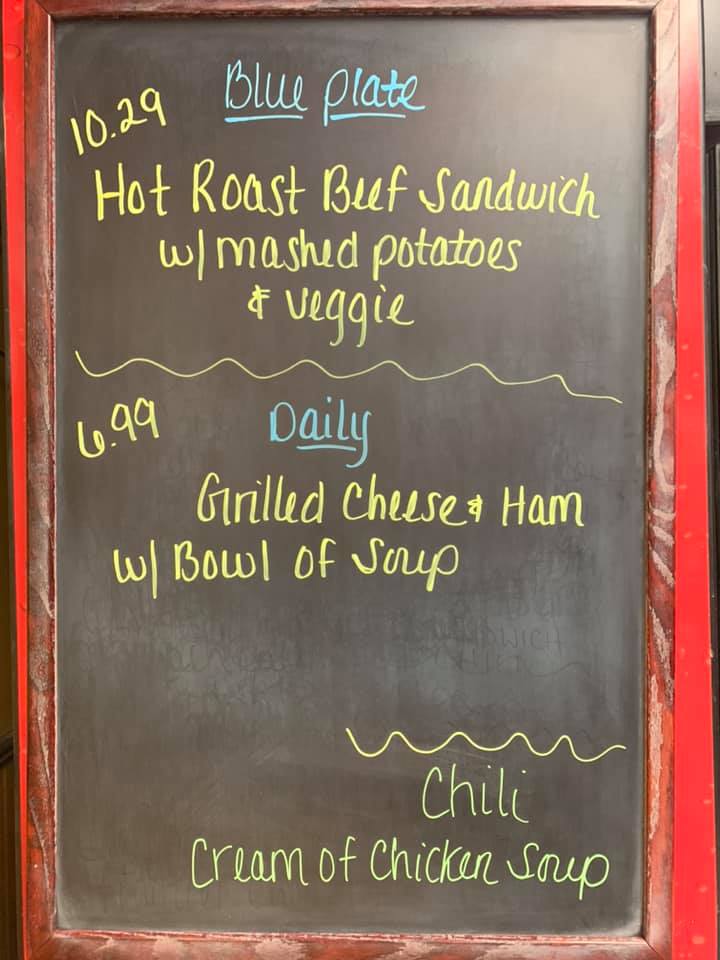 Blue Plate
10.29
Hot Roast Beef Sandwich
w/ mashed potatoes
& veggie
6.99
Daily
Grilled Cheese & Ham
w/ Bowl of Soup
Chili
Cream of Chicken Soup